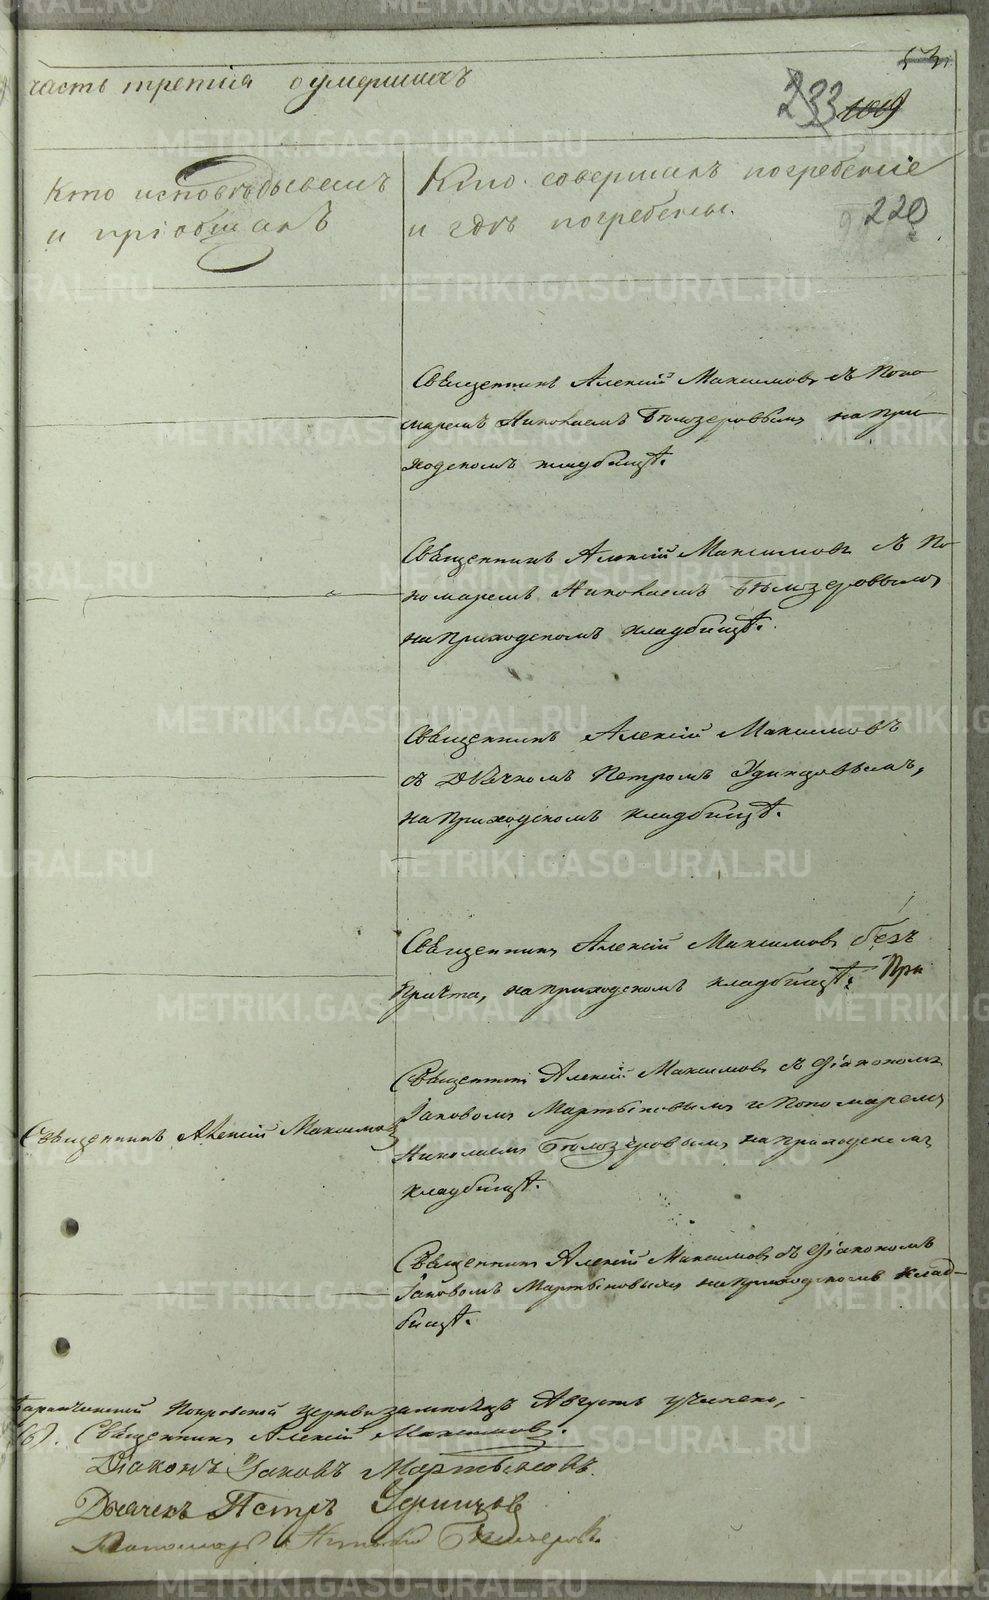 часть третія о умершихъ
233 1009
Кто исповѣдывалъ
и пріобщалъ
Кто совершалъ погребеніе
и гдѣ погребены.
220
Священникъ Алексій Максимовъ съ Поно
маремъ Николаемъ Бѣлозеровымъ на при
ходскомъ кладбищѣ.
Священникъ Алексій Максимовъ съ По
номаремъ Николаемъ Бѣлозеровымъ
на приходскомъ кладбищѣ.
Священникъ Алексій Максимовъ
съ Дьячкомъ Петромъ Удинцовымъ,
на приходскомъ кладбищѣ.
Священникъ Алексій Максимовъ безъ
причта, на приходскомъ кладбищѣ. При
Священникъ Алексій Максимовъ
Священникъ Алексій Максимовъ съ Діакономъ
Іаковомъ Мартыновымъ и Пономаремъ
Николаемъ Бѣлозеровымъ на приходскомъ
кладбищѣ.
Священникъ Алексій Максимовъ съ Діакономъ
Іаковомъ Мартыновымъ на приходскомъ клад-
бищѣ.
Баранчинской Покровской церкви за мѣсяцъ Августъ учинено,
Священникъ Алексій Максимовъ.
Діаконъ Іаковъ Мартыновъ.
Дьячекъ Петръ Удинцовъ
Пономарь Николай Бѣлозеровъ.
METRIKI.GASO-URAL.RU